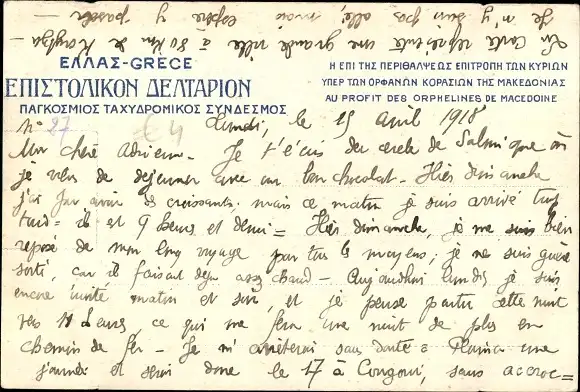 La carte représente une grande ville à 80 km de Kogega —
Je n'y suis pas allé, mais espère y passer —
ΕΛΛΑΣ-GRECE
ΕΠΙΣΤΟΛΙΚΟΝ ΔΕΛΤΑΡΙΟΝ
ΠΑΓΚΟΣΜΙΟΣ ΤΑΧΥΔΡΟΜΙΚΟΣ ΣΥΝΔΕΣΜΟΣ
Η ΕΠΙ ΤΗΣ ΠΕΡΙΘΑΛΨΕΩΣ ΕΠΙΤΡΟΠΗ ΤΩΝ ΚΥΡΙΩΝ
ΥΠΕΡ ΤΩΝ ΟΡΦΑΝΩΝ ΚΟΡΑΣΙΩΝ ΤΗΣ ΜΑΚΕΔΟΝΙΑΣ
AU PROFIT DES ORPHELINES DE MACEDOINE
N° 27
€4
Lundi, le 15 avril 1918
Ma chère Adrienne - Je t'écris du cercle de Salonique où
je viens de déjeuner avec un bon chocolat - Hier dimanche
j'ai pu avoir des croissants, mais ce matin je suis arrivé trop
tard = il est 9 heures et demi = Hier dimanche, je me suis bien
reposé de mon long voyage par tous les moyens; je ne suis guère
sorti, car il faisait déjà assez chaud - Aujourd'hui lundi je suis
encore invité matin et soir, et je pense partir cette nuit
vers 11 heures ce qui me fera une nuit de plus en
chemin de fer - Je m'arrêterai sans doute à Florina une
journée et serai donc le 17 à sans accroc =